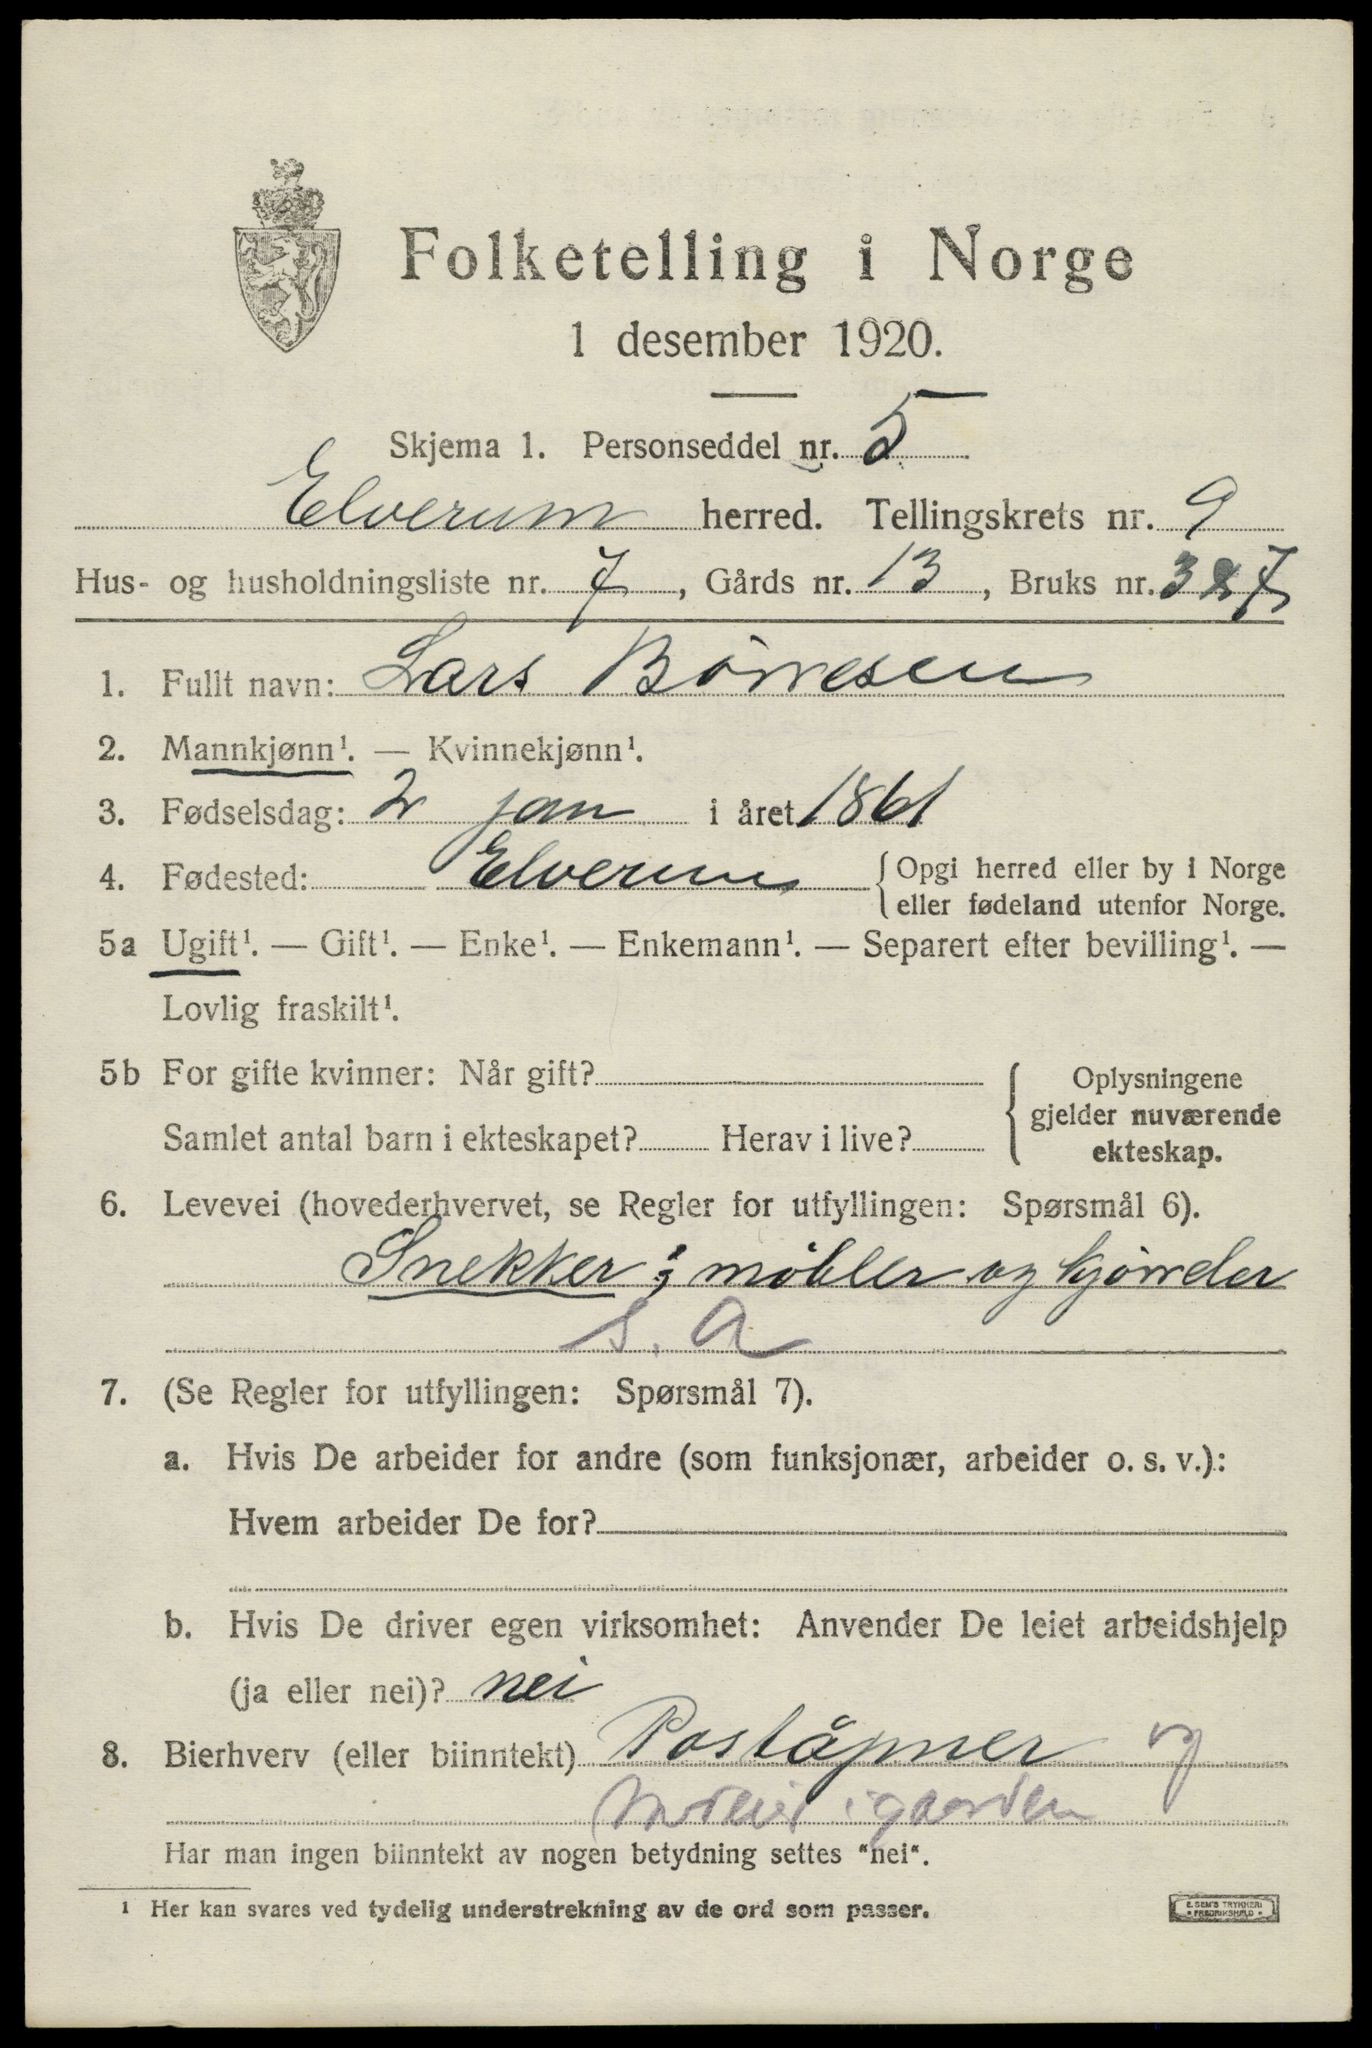 Folketelling i Norge
1 desember 1920.
Skjema 1. Personseddel nr. 5
Elverum herred. Tellingskrets nr. 9
Hus- og husholdningsliste nr. 7, Gårds nr. 13, Bruks nr. 327
1. Fullt navn: Lars Börresen
2. Mannkjønn¹. — Kvinnekjønn¹.
3. Fødselsdag: 2 jan i året 1861
4. Fødested: Elverum {Opgi herred eller by i Norge
eller fødeland utenfor Norge.
5a Ugift¹. — Gift¹. — Enke¹. — Enkemann¹. — Separert efter bevilling¹. —
Lovlig fraskilt¹.
5b For gifte kvinner: Når gift?
Samlet antal barn i ekteskapet? Herav i live?
{Oplysningene
gjelder nuværende
ekteskap.
6. Levevei (hovederhvervet, se Regler for utfyllingen: Spørsmål 6).
Snekker; möbler og kjörreler
S. A
7. (Se Regler for utfyllingen: Spørsmål 7).
a. Hvis De arbeider for andre (som funksjonær, arbeider o. s. v.):
Hvem arbeider De for?
b. Hvis De driver egen virksomhet: Anvender De leiet arbeidshjelp
(ja eller nei)? nei
8. Bierhverv (eller biinntekt) Poståpner og
igaarden
Har man ingen biinntekt av nogen betydning settes "nei".
¹ Her kan svares ved tydelig understrekning av de ord som passer.
E. SEM'S TRYKKERI
• FREDRIKSHALD •